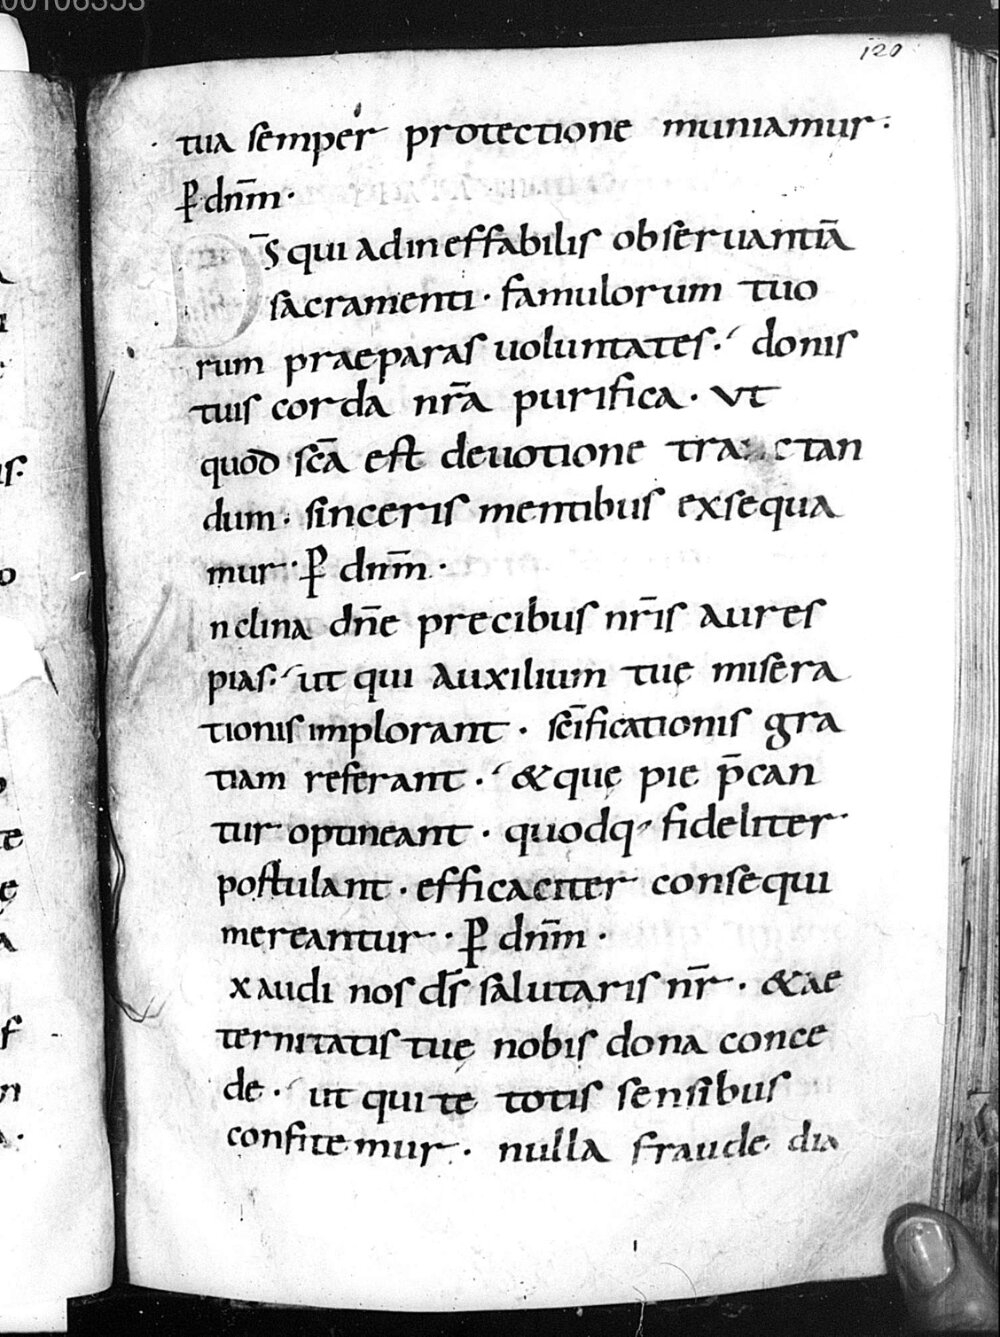 00106353
120
tua semper protectione muniamur.
p̄ dn̄m.
D̄S qui ad ineffabilis obseruantiā
sacramenti. famulorum tuo
rum praeparas uoluntates. donis
tuis corda nr̄a purifica. Vt
quod sc̄a est deuotione tractan
dum. sinceris mentibus exsequa
mur. p̄ dn̄m.
nclina dn̄e precibus nr̄is aures
pias. ut qui auxilium tuę misera
tionis implorant. sc̄ificationis gra
tiam referant. & quę pie p̄can
tur optineant. quodq; fideliter
postulant. efficaciter consequi
mereantur. p̄ dn̄m.
xaudi nos d̄s salutaris nr̄. & ae
ternitatis tuę nobis dona conce
de. ut qui te totis sensibus
confitemur. nulla fraude dia